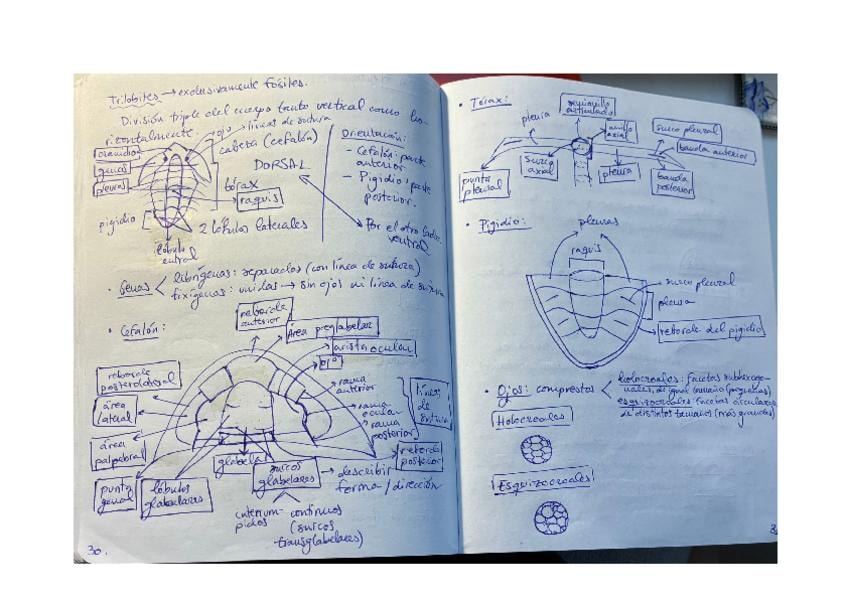 Trilobites → exclusivamente fósiles.
División triple del cuerpo tanto vertical como ho-
rizontalmente.
ojo
líneas de sutura
cabeza (cefalón)
cranidio
genas
pleuras
DORSAL
tórax
raquis
pigidio
2 lóbulos laterales
lóbulo
Orientación:
- Cefalón: parte
anterior
- Pigidio: parte
posterior.
Por el otro lado:
ventral
· Genas
librígenas: separadas (con línea de sutura)
fixígenas: unidas → sin ojos ni línea de sutura
· Cefalón:
reborde
anterior
Área preglabelar
arista ocular
ojo
reborde
posterolateral
área
lateral
área
palpebral
punta
genal
lóbulos
glabelares
glabela
surcos
glabelares
→ describir
forma / dirección
rama
anterior
rama
ocular
rama
posterior
líneas
de
sutura
reborde
posterior
continuos
(surcos
transglabelares)
30.
· Tórax:
pleura
semianillo
articulado
anillo
axial
surco pleural
banda anterior
punta
pleural
surco
axial
pleura
banda
posterior
· Pigidio:
pleuras
raquis
surco pleural
pleura
reborde del pigidio
· Ojos: compuestos
holocroales: facetas
de igual tamaño (pequeñas)
esquizocroales: facetas circulares
de distintos tamaños (más grandes)
Holocroales
Esquizocroales